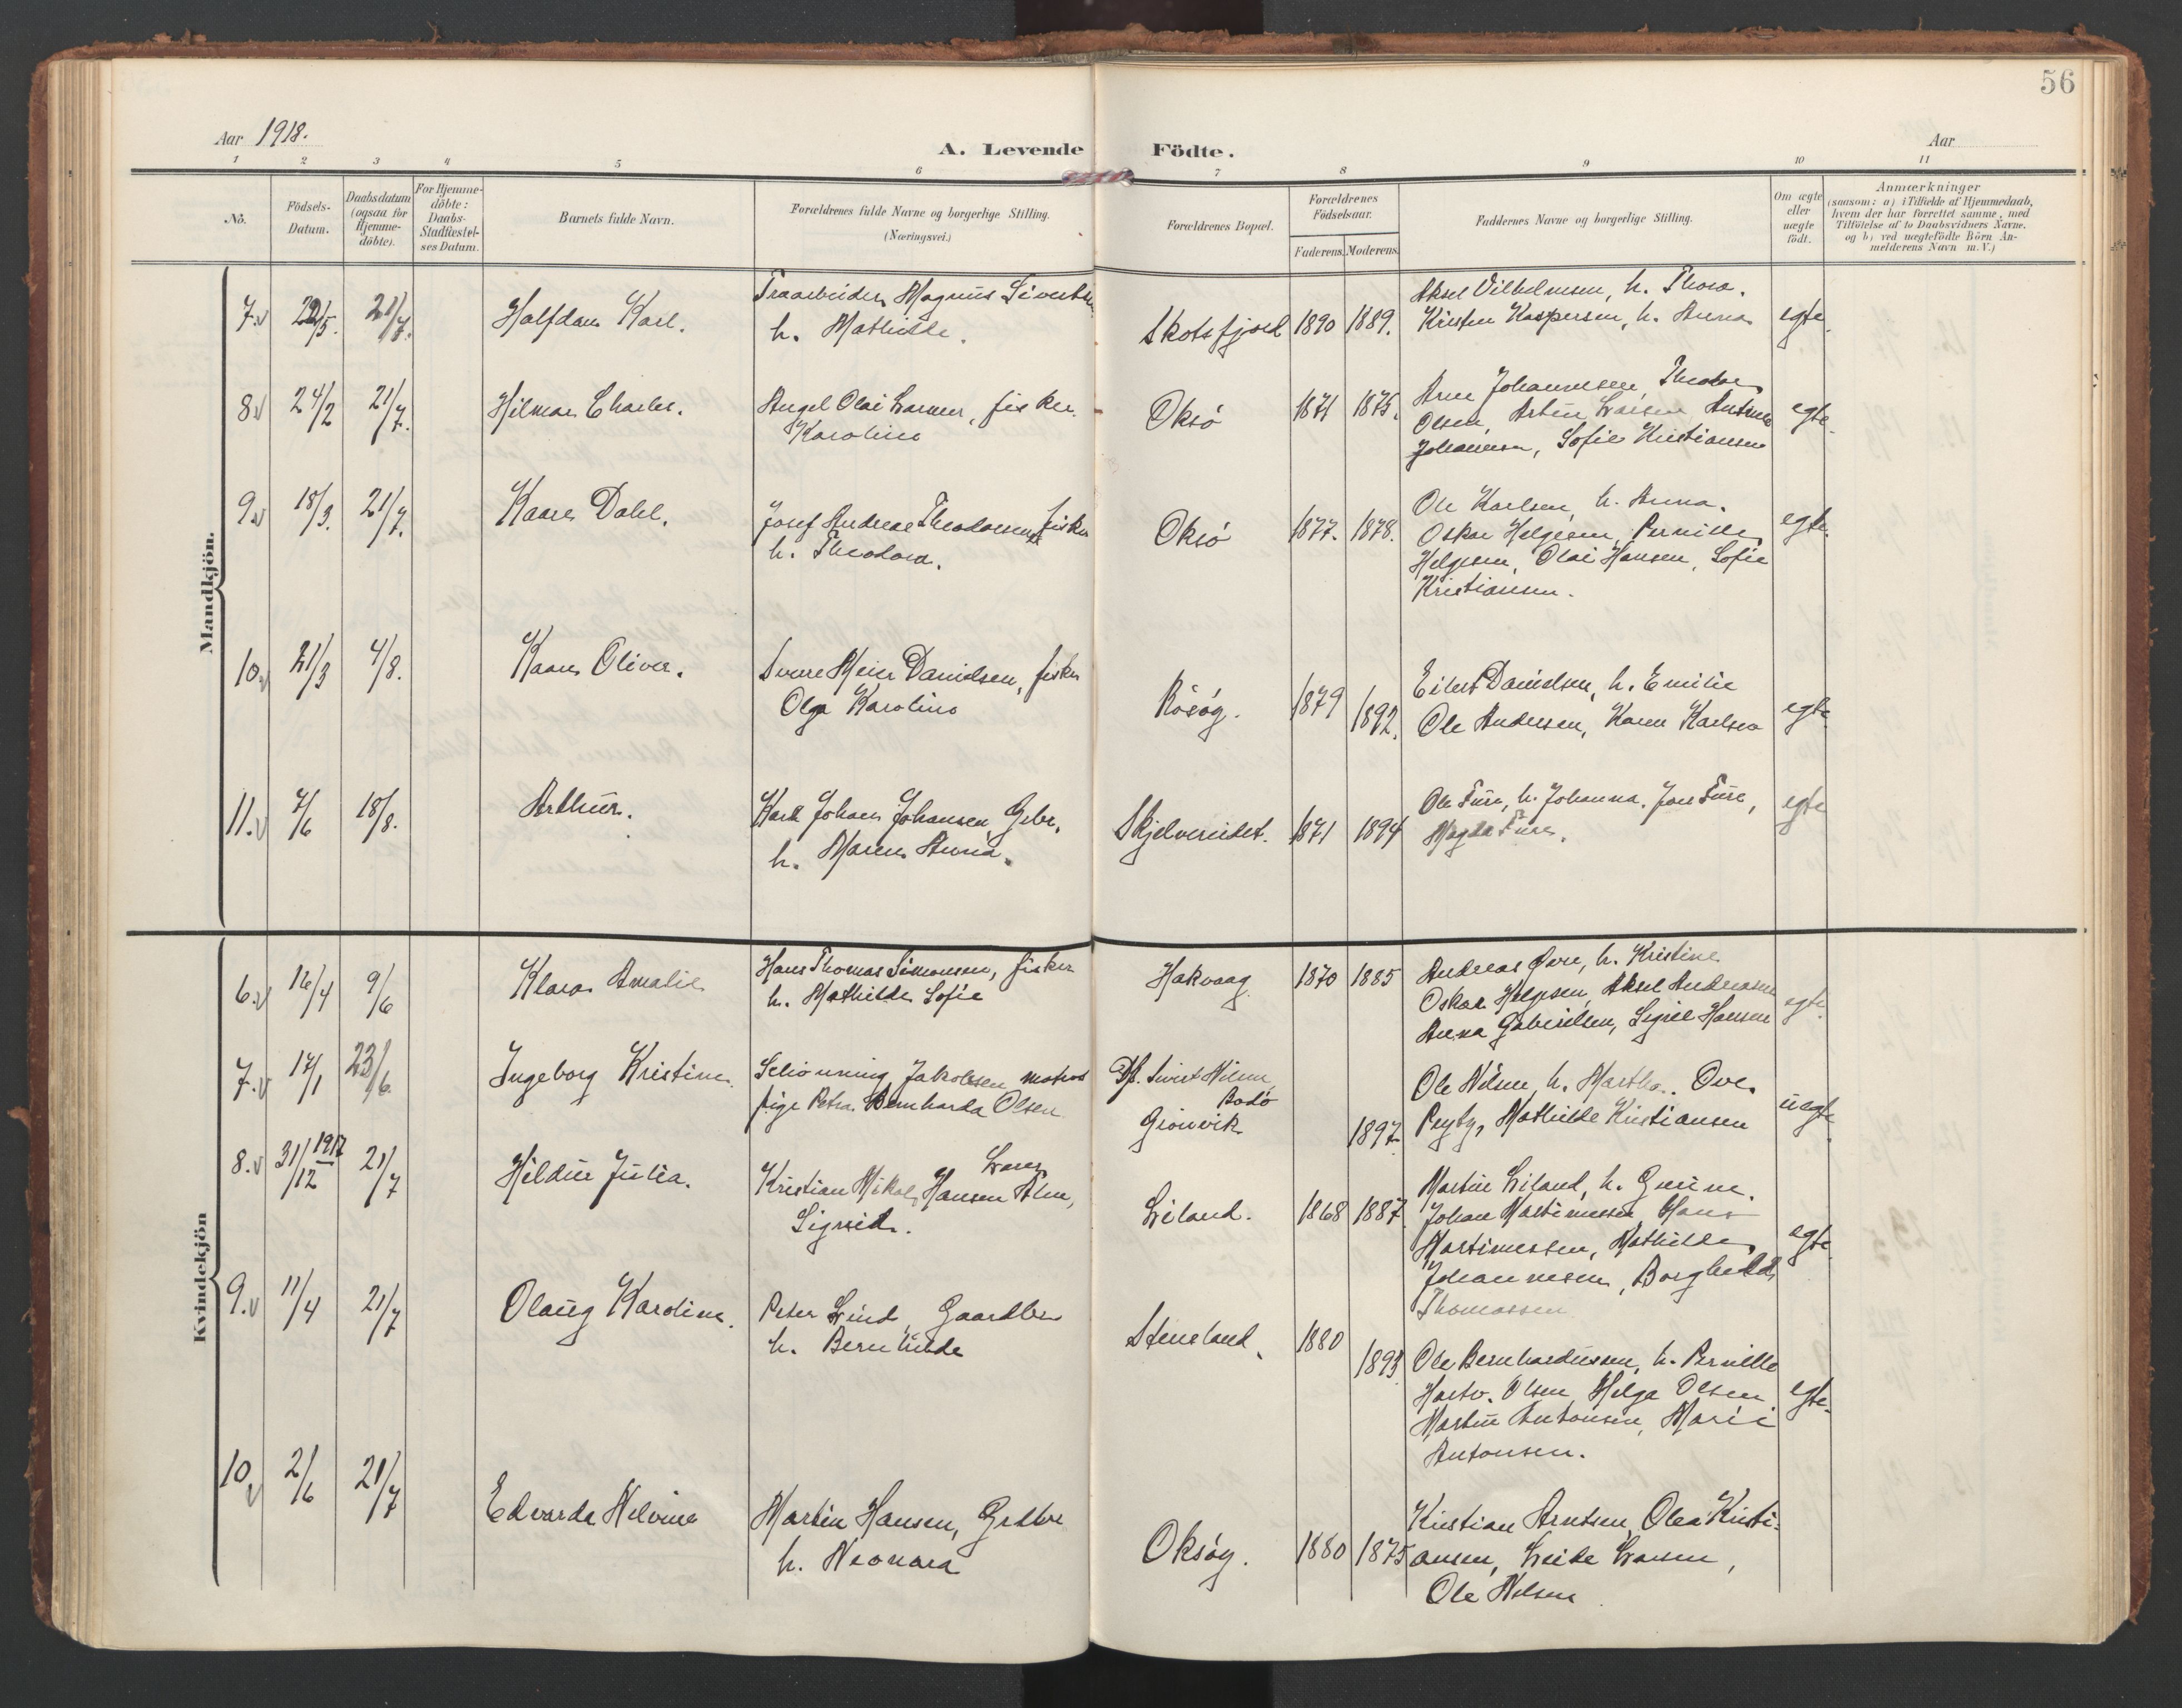 56
Aar 1918.
A. Levende Födte.
Aar
1 2 3 4 5 6 7 8 9 10 11
No.
Födsels-Datum.
Daabsdatum (ogsaa for Hjemme-döbte).
For Hjemme-döbte: Daabs-Stadfæstel-ses Datum.
Barnets fulde Navn.
Forældrenes fulde Navne og borgerlige Stilling.
(Næringsvei.)
Forældrenes Bopæl.
Forældrenes Födselsaar.
Faderens. Moderens.
Faddernes Navne og borgerlige Stilling.
Om ægte eller uægte födt.
Anmærkninger
(saasom: a) i Tilfælde af Hjemmedaab,
hvem der har forrettet samme, med
Tilföielse af to Daabsvidners Navne.
og b) ved uægtefödte Börn An-
melderens Navn m. V.)
Mandkjön.
7. 22/5. 21/7. Halfdan Karl. Magnus Sivertsen
h. Mathilde.
Skotsfjord 1890 1889.
Aksel Vilhelmsen, h. Thora.
Kristen Kaspersen, h. Anna egte.
8 24/2 21/7. Hilmar Charles. Angel Olai Larsen, fisker.
Karoline
Oksö 1871 1875.
Arne Johannesen, Theodor
Olsen, Larsen
Johannesen, Sofie Kristiansen egte.
9. 18/3. 21/7. Kaare Dahl. Josef Andreas Theodorsen, fisker
h. Theodora.
Oksö 1877. 1878.
Ole Karlsen, h. Anna.
Oskar Helgesen, Pernille
Helgesen, Olai Hansen, Sofie
Kristiansen. egte.
10. 21/3 4/8. Kaare Oliver. Meier Danielsen, fisker
Olga Karoline
Rösög. 1879 1892.
Eilert Danielsen, h. Emilie
Ole Andersen, Karen Karlsen egte.
11. 7/6 18/8. Arthur. Karl Johan Johansen, Gbr.
h. Maren Anna.
Skjelvereidet. 1871 1894
Ole Fure, h. Johanna. Jon Fure,
Magda Fure. egte
Kvindekjön
6. 16/4 9/6 Klara Amalie Hans Thomas Simonsen, fisker
h. Mathilde Sofie
Hakvaag. 1870 1885
Andreas Övre, h. Kristine
Oskar Helgesen, Aksel Andreasen
Anna Gabrielsen, Hansen egte.
7. 17/1 23/6 Ingeborg Kristine. Schönning Jakobsen matros
pige Petra Bernharda Olsen
Sivert Nilsen, Bodö
Grönvik 1897
Ole Nilsen, h. Martha. Ove
Peyty, Mathilde Kristiansen uegte.
8. 31/12 1917 21/7 Hildur Julia. Kristian Nikolai Hansen
Sigrid.
Liland. 1868 1887
Martin Liland, h. Gurine.
Johan Martinussen, Hans
Martinussen, Mathilde
Johannesen, Borghild
Thomassen egte.
9. 11/4 21/7 Olaug Karoline. Peter Lind, Gaardbr.
h. Bernhilde
Steneland. 1880 1893.
Ole Bernhardussen, h. Pernille
Hartv. Olsen, Helga Olsen.
Martin Antonsen, Marie
Antonsen. egte.
10. 2/6 21/7 Edvarda Nelvine Martin Hansen, Grdbr
h. Neonora
Oksög. 1880 1875
Kristian Arntsen, Olea Kristi-
ansen, Larsen,
Ole Nilsen